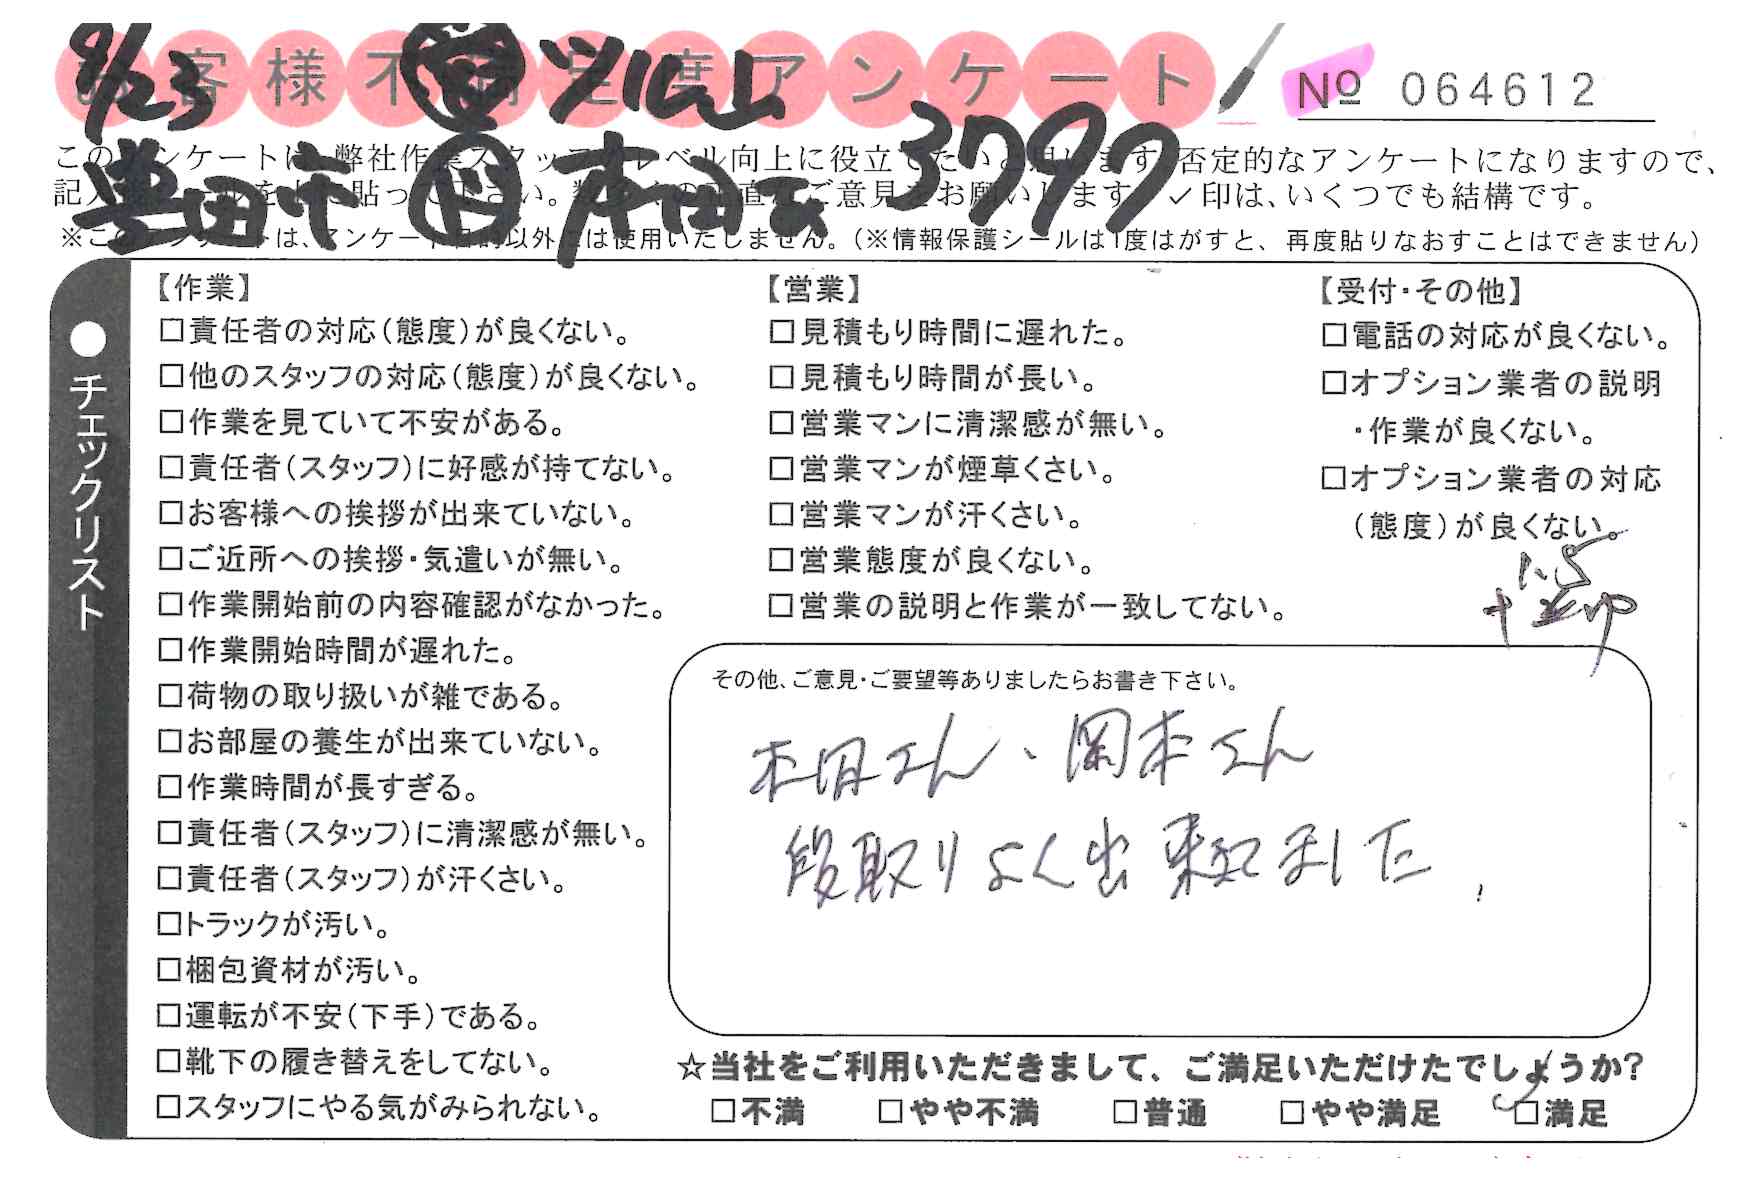 8/23 ツルム
お客様不満足度アンケート
№ 064612
豊田市 本田 3797
このアンケートは、弊社作業スタッフのレベル向上に役立てたいと思います。否定的なアンケートになりますので、
記入後シールを上に貼って下さい。数多くの正直なご意見をお願いします。✓印は、いくつでも結構です。
※このアンケートは、アンケート目的以外には使用いたしません。(※情報保護シールは1度はがすと、再度貼りなおすことはできません)
●チェックリスト
【作業】
□責任者の対応(態度)が良くない。
□他のスタッフの対応(態度)が良くない。
□作業を見ていて不安がある。
□責任者(スタッフ)に好感が持てない。
□お客様への挨拶が出来ていない。
□ご近所への挨拶・気遣いが無い。
□作業開始前の内容確認がなかった。
□作業開始時間が遅れた。
□荷物の取り扱いが雑である。
□お部屋の養生が出来ていない。
□作業時間が長すぎる。
□責任者(スタッフ)に清潔感が無い。
□責任者(スタッフ)が汗くさい。
□トラックが汚い。
□梱包資材が汚い。
□運転が不安(下手)である。
□靴下の履き替えをしてない。
□スタッフにやる気がみられない。
【営業】
□見積もり時間に遅れた。
□見積もり時間が長い。
□営業マンに清潔感が無い。
□営業マンが煙草くさい。
□営業マンが汗くさい。
□営業態度が良くない。
□営業の説明と作業が一致してない。
【受付・その他】
□電話の対応が良くない。
□オプション業者の説明
・作業が良くない。
□オプション業者の対応
(態度)が良くない。
その他、ご意見・ご要望等ありましたらお書き下さい。
本田さん、岡本さん
段取りよく出来てました。
☆当社をご利用いただきまして、ご満足いただけたでしょうか?
□不満 □やや不満 □普通 □やや満足 □満足